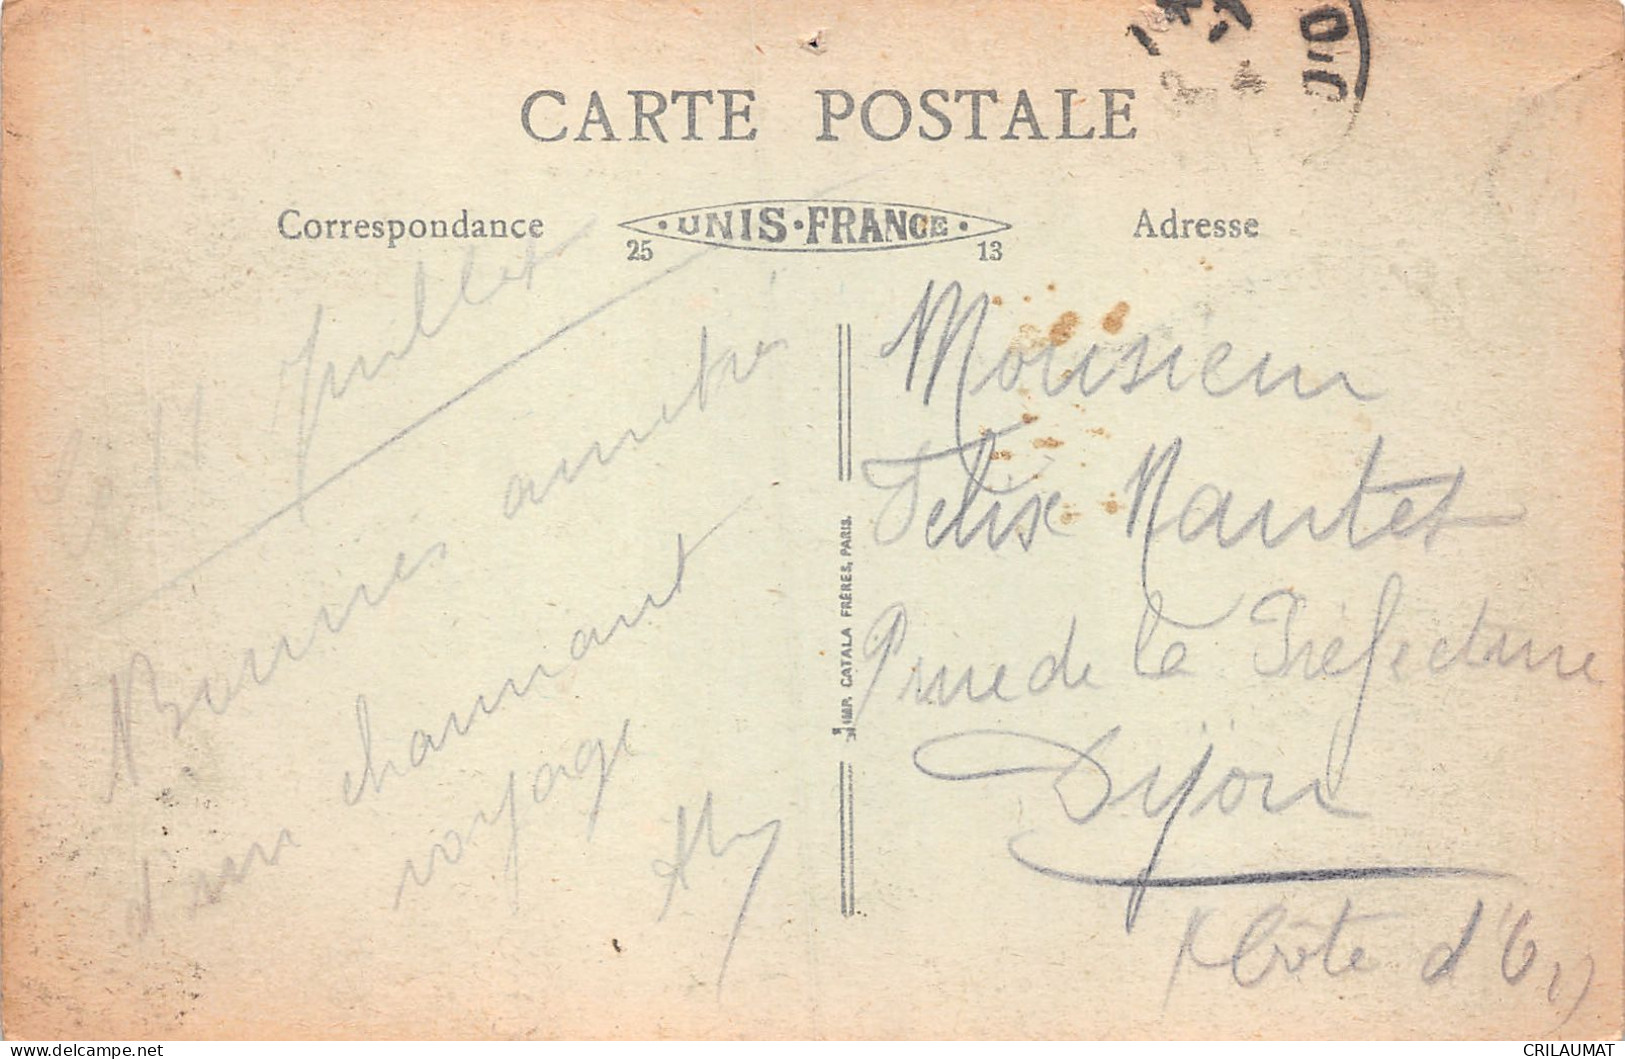 CARTE POSTALE
Correspondance
UNIS·FRANCE
25 13
Adresse
11 Juillet
Bonnes amitiés
d'un charmant
voyage
IMP. CATALA FRÈRES, PARIS.
Monsieur
Felix Nantet
rue de la Préfecture
Dijon
(Côte d'Or)
CRILAUMAT